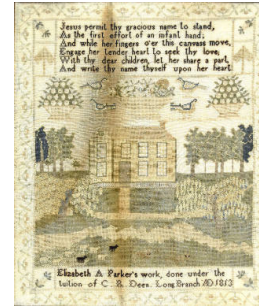 Jesus permit thy gracious name to stand,
As the first effort of an infant hand;
And while her fingers o'er this canvass move,
Engage her tender heart to seek thy love;
With thy dear children, let her share a part,
And write thy name thyself upon her heart
Elizabeth A Parker's work, done under the
tuition of C. B. Deen. Long Branch AD 1813